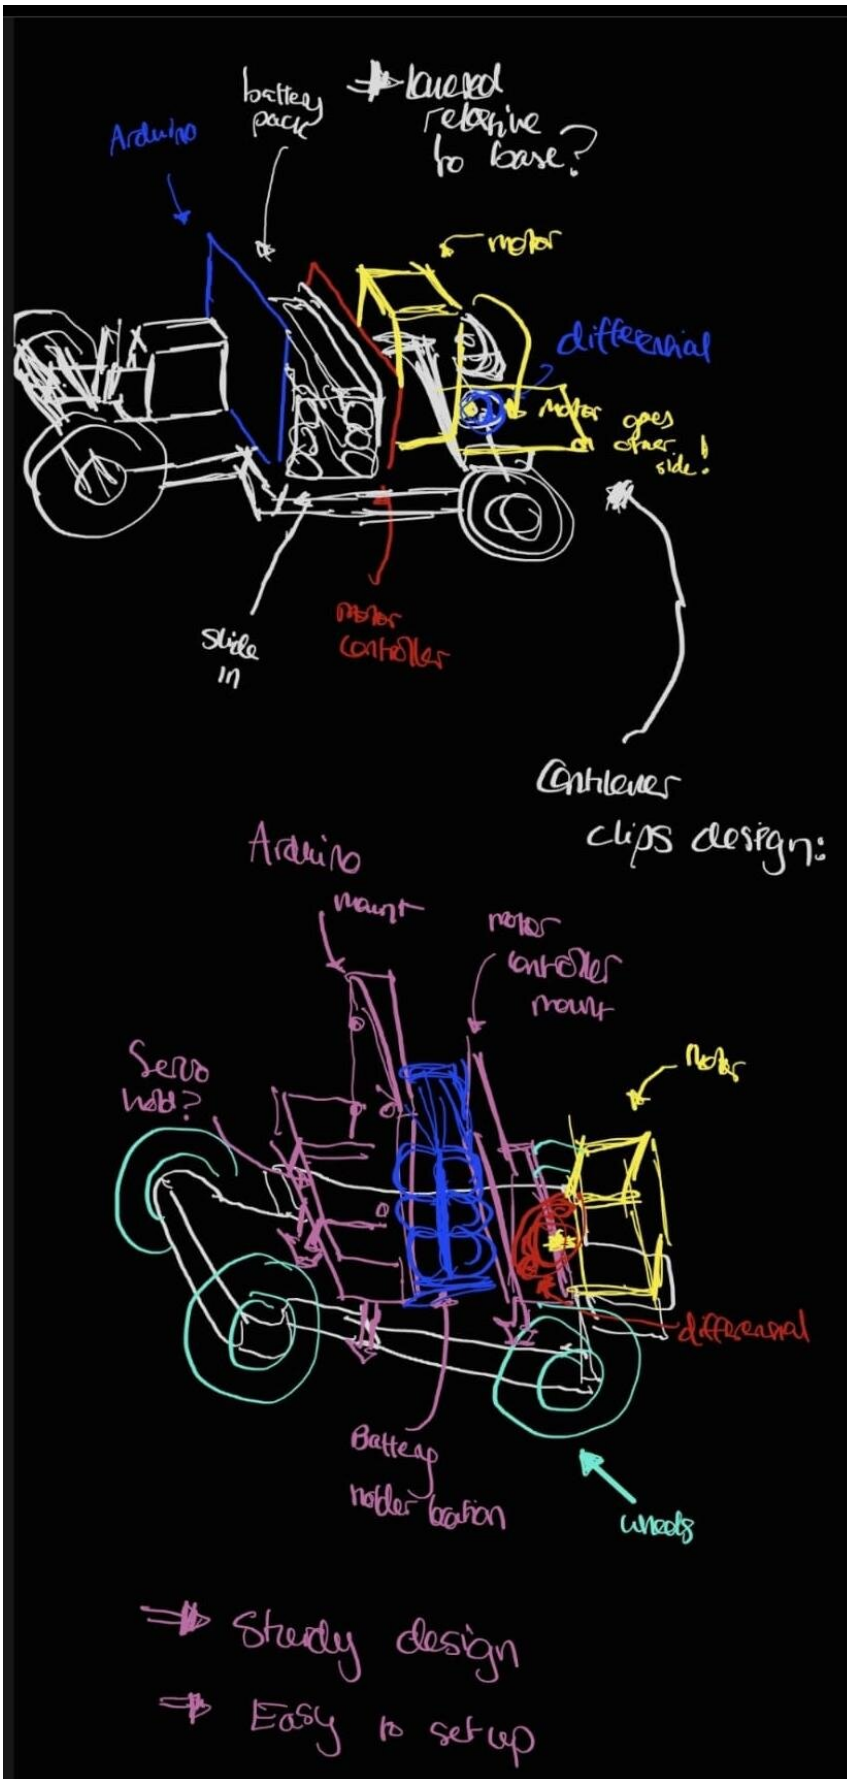 battery
pack
⇒ lowered
relative
to base?
Arduino
motor
differential
motor goes
other
side!
slide
in
motor
controller
Cantilever
clips design:
Arduino
mount
motor
controller
mount
Servo
hold?
Motor
differential
Battery
holder location
wheels
⇒ Sturdy design
⇒ Easy to set up